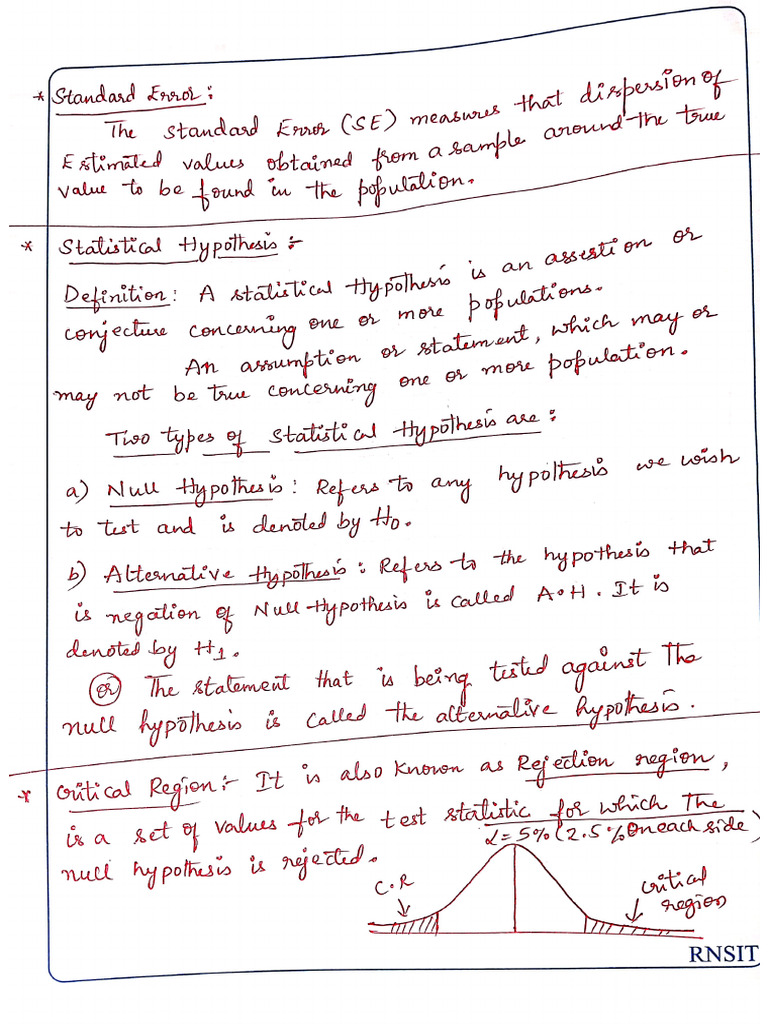 * Standard Error :
The Standard Error (SE) measures that dispersion of
Estimated values obtained from a sample around the true
value to be found in the population.
* Statistical Hypothesis :-
Definition : A statistical Hypothesis is an assertion or
conjecture concerning one or more populations.
An assumption or statement, which may or
may not be true concerning one or more population.
Two types of Statistical Hypothesis are :
a) Null Hypothesis : Refers to any hypothesis we wish
to test and is denoted by H0.
b) Alternative Hypothesis : Refers to the hypothesis that
is negation of Null-Hypothesis is called A.H. It is
denoted by H1.
(or) The statement that is being tested against the
null hypothesis is called the alternative hypothesis.
* Critical Region :- It is also known as Rejection region,
is a set of values for the test statistic for which the
null hypothesis is rejected.
α=5% (2.5% on each side)
C.R
critical
region
RNSIT